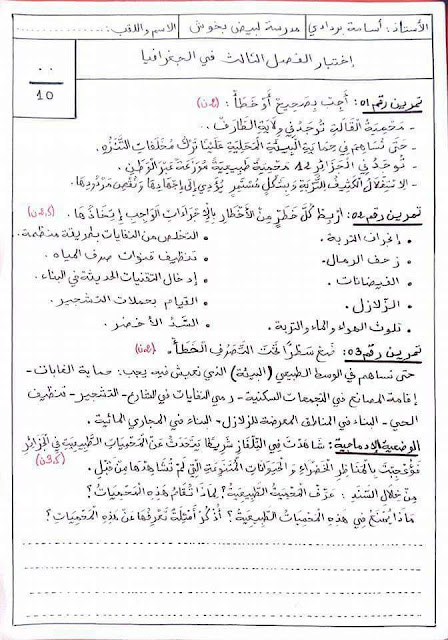 الأستاذ: أسامة بردادي مدرسة لبيض بخوش الاسم واللقب:
اختبار الفصل الثالث في الجغرافيا
..
10
تمرين رقم 01: أَجِبْ بِصَحِيحٍ أَوْ خَطَأْ: (2ن)
- مَحْمِيَةُ القَالَةِ تُوجَدُ فِي وِلَايَةِ الطَّارَفْ.
- حَتَّى نُسَاهِمَ فِي حِمَايَةِ الْبِيئَةِ الْمَحَلِّيَةِ عَلَيْنَا تَرْكُ مُخَلَّفَاتِ التَّنَزُّهِ.
- تُوجَدُ فِي الْجَزَائِرِ 12 مَحْمِيَةً طَبِيعِيَةً مُوَزَّعَةً عَبْرَ الْوَطَنِ.
- الاسْتِغْلَالُ الْكَثِيفُ لِلتُّرْبَةِ وَبِشَكْلٍ مُسْتَمِرٍّ يُؤَدِّي إِلَى إِجْهَادِهَا وَنَقْصِ مَرْدُودِهَا.
تمرين رقم 02: اُرْبِطْ كُلَّ خَطَرٍ مِنَ الْأَخْطَارِ بِالْإِجْرَاءَاتِ الْوَاجِبِ إِتِّخَاذُهَا. (2,5ن)
• إنجراف التربة. • التخلص من النفايات بطريقة منظمة.
• زحف الرمال. • تنظيف قنوات صرف المياه.
• الفيضانات • إدخال التقنيات الحديثة في البناء.
• الزلازل. • القيام بحملات التشجير.
• تلوث الهواء والماء والتربة. • السَّدُّ الأخضر.
تمرين رقم 03: ضَعْ سَطْرًا تَحْتَ التَّصَرُّفِ الْخَطَأْ. (2ن)
حتى نساهم في الوسط الطبيعي (البيئة) الذي نعيش فيه يجب: حماية الغابات-
إقامة المصانع في التجمعات السكنية- رمي النفايات في الشارع- التشجير- تنظيف
الحي- البناء في المناطق المعرضة للزلازل- البناء في المجاري المائية.
الوضعية الإدماجية: شَاهَدْتَ فِي التِّلْفَازِ شَرِيطًا يَتَحَدَّثُ عَنْ الْمَحْمِيَاتِ الطَّبِيعِيَةِ فِي الْجَزَائِرِ
فَأُعْجِبْتَ بِالْمَنَاظِرِ الْخَضْرَاءِ وَ الْحَيَوَانَاتِ الْمُتَنَوِّعَةِ الَّتِي لَمْ تُشَاهِدْهَا مِنْ قَبْلِ. (3,5ن)
مِنْ خِلَالِ السَّنَدِ: عَرِّفْ الْمَحْمِيَةَ الطَّبِيعِيَةَ؟ لِمَاذَا تُقَامُ هَذِهِ الْمَحْمِيَاتُ؟
مَاذَا يُمْنَعُ فِي هَذِهِ الْمَحْمِيَاتِ الطَّبِيعِيَةِ؟ أُذْكُرْ أَمْثِلَةً تَعْرِفُهَا عَنْ هَذِهِ الْمَحْمِيَاتِ؟